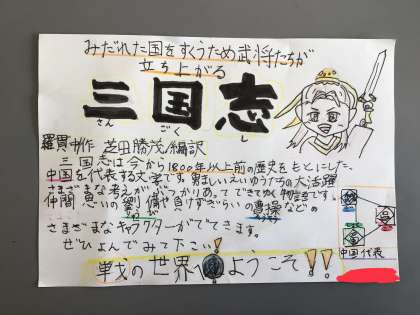 みだれた国をすくうため武将たちが
立ち上がる
三国志
さん ごく し
羅貫中作 芝田勝茂/編訳
三国志は今から1800年以上前の歴史をもとにした、
中国を代表する文学です。勇ましいえいゆうたちの大活躍
さまざまな考えがぶつかりあってできてゆく物語です。
仲間思いの劉備や負けずぎらいの曹操などの
さまざまなキャラクターがでてきます。
ぜひよんでみて下さい!
戦の世界へようこそ!!
中国代表